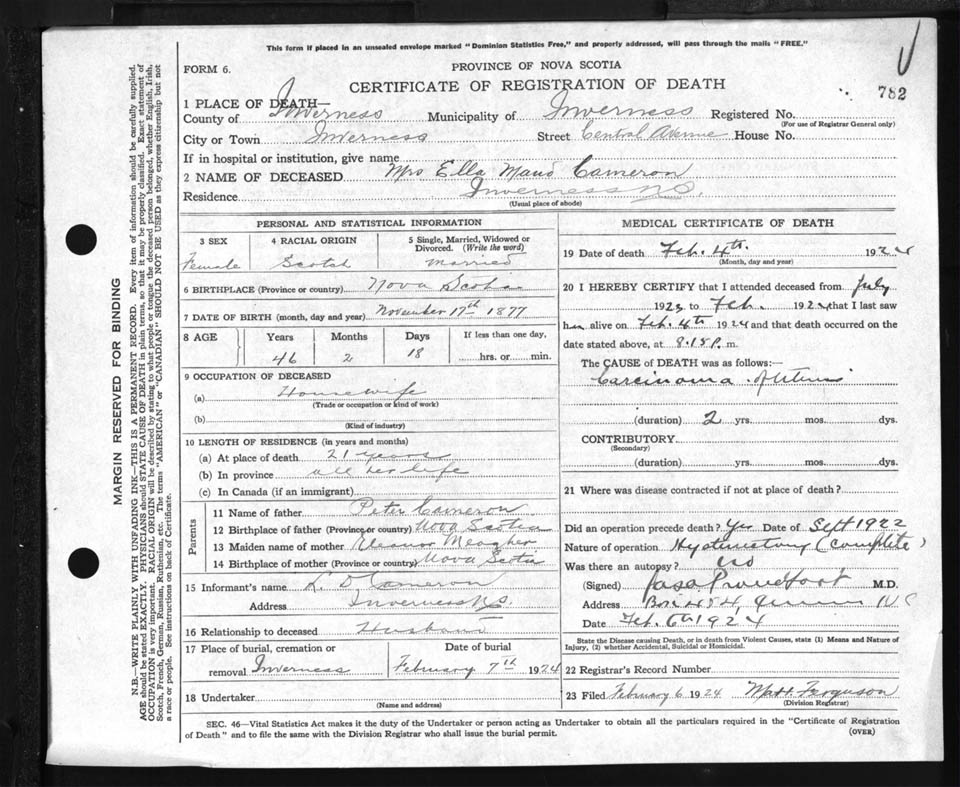 This form if placed in an unsealed envelope marked "Dominion Statistics Free," and properly addressed, will pass through the mails "FREE."
FORM 6.
PROVINCE OF NOVA SCOTIA
CERTIFICATE OF REGISTRATION OF DEATH
782
1 PLACE OF DEATH—
County of Inverness Municipality of Inverness Registered No.
(For use of Registrar General only)
City or Town Inverness Street Central Avenue House No.
If in hospital or institution, give name
2 NAME OF DECEASED Mrs Ella Maud Cameron
Residence Inverness N.S.
(Usual place of abode)
PERSONAL AND STATISTICAL INFORMATION
3 SEX 4 RACIAL ORIGIN 5 Single, Married, Widowed or Divorced. (Write the word)
Female Scotch Married
6 BIRTHPLACE (Province or country) Nova Scotia
7 DATE OF BIRTH (month, day and year) November 17th 1877
8 AGE Years Months Days If less than one day,
46 2 18 hrs. or min.
9 OCCUPATION OF DECEASED
(a) Housewife
(Trade or occupation or kind of work)
(b)
(Kind of industry)
10 LENGTH OF RESIDENCE (in years and months)
(a) At place of death 21 years
(b) In province all her life
(c) In Canada (if an immigrant)
Parents
11 Name of father Peter Cameron
12 Birthplace of father (Province or country) Nova Scotia
13 Maiden name of mother Eleanor Meagher
14 Birthplace of mother (Province or country) Nova Scotia
15 Informant's name K. D Cameron
Address Inverness N.S.
16 Relationship to deceased Husband
17 Place of burial, cremation or removal Inverness
Date of burial
February 7th 1924
18 Undertaker
(Name and address)
MEDICAL CERTIFICATE OF DEATH
19 Date of death Feb. 4th 1924
(Month, day and year)
20 I HEREBY CERTIFY that I attended deceased from July
1923 to Feb. 1924 that I last saw
her alive on Feb. 4th 1924 and that death occurred on the
date stated above, at 8.15 P. m.
The CAUSE of DEATH was as follows:—
Carcinoma of Uterus
(duration) 2 yrs. mos. dys.
CONTRIBUTORY
(Secondary)
(duration) yrs. mos. dys.
21 Where was disease contracted if not at place of death?
Did an operation precede death? Yes Date of Sept 1922
Nature of operation Hysterectomy (Complete)
Was there an autopsy? no
(Signed) M.D.
Address Box 454, N S
Date Feb. 6th 1924
State the Disease causing Death, or in death from Violent Causes, state (1) Means and Nature of Injury, (2) whether Accidental, Suicidal or Homicidal.
22 Registrar's Record Number
23 Filed February 6 1924 Matt. Ferguson
(Division Registrar)
SEC. 46—Vital Statistics Act makes it the duty of the Undertaker or person acting as Undertaker to obtain all the particulars required in the "Certificate of Registration
of Death" and to file the same with the Division Registrar who shall issue the burial permit.
(OVER)
MARGIN RESERVED FOR BINDING
N.B.—WRITE PLAINLY WITH UNFADING INK—THIS IS A PERMANENT RECORD. Every item of information should be carefully supplied.
AGE should be stated EXACTLY. PHYSICIANS should STATE CAUSE OF DEATH in plain terms, so that it may be properly classified. Exact statement of
OCCUPATION is very important. RACIAL ORIGIN will be described by stating to what people or tongue the deceased person belonged, whether English, Irish,
Scotch, French, German, Russian, Ruthenian, etc. The terms "AMERICAN" or "CANADIAN" SHOULD NOT BE USED as they express citizenship but not
a race or people. See instructions on back of Certificate.